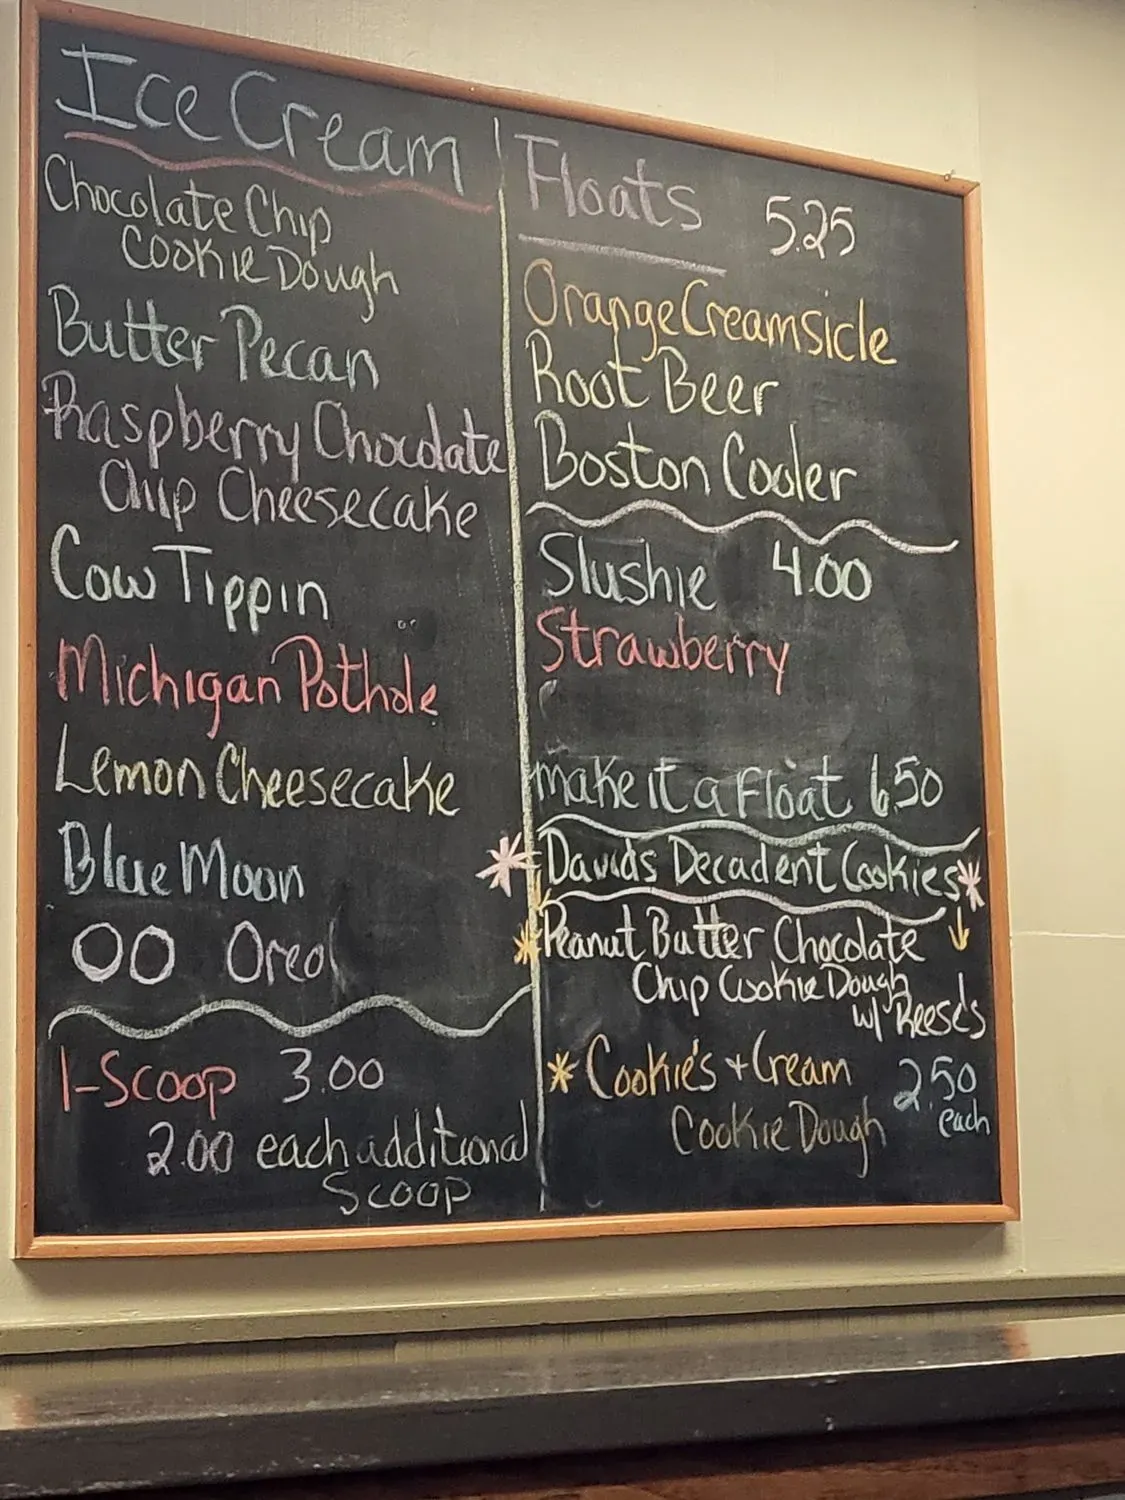 Ice Cream
Chocolate Chip
Cookie Dough
Butter Pecan
Raspberry Chocolate
Chip Cheesecake
Cow Tippin
Michigan Pothole
Lemon Cheesecake
Blue Moon
OO Oreo
1-Scoop 3.00
2.00 each additional
Scoop
Floats 5.25
Orange Creamsicle
Root Beer
Boston Cooler
Slushie 4.00
Strawberry
make it a Float 6.50
*Davids Decadent Cookies*
*Peanut Butter Chocolate ↓
Chip Cookie Dough
w/ Reese's
*Cookie's + Cream 2.50
Cookie Dough each